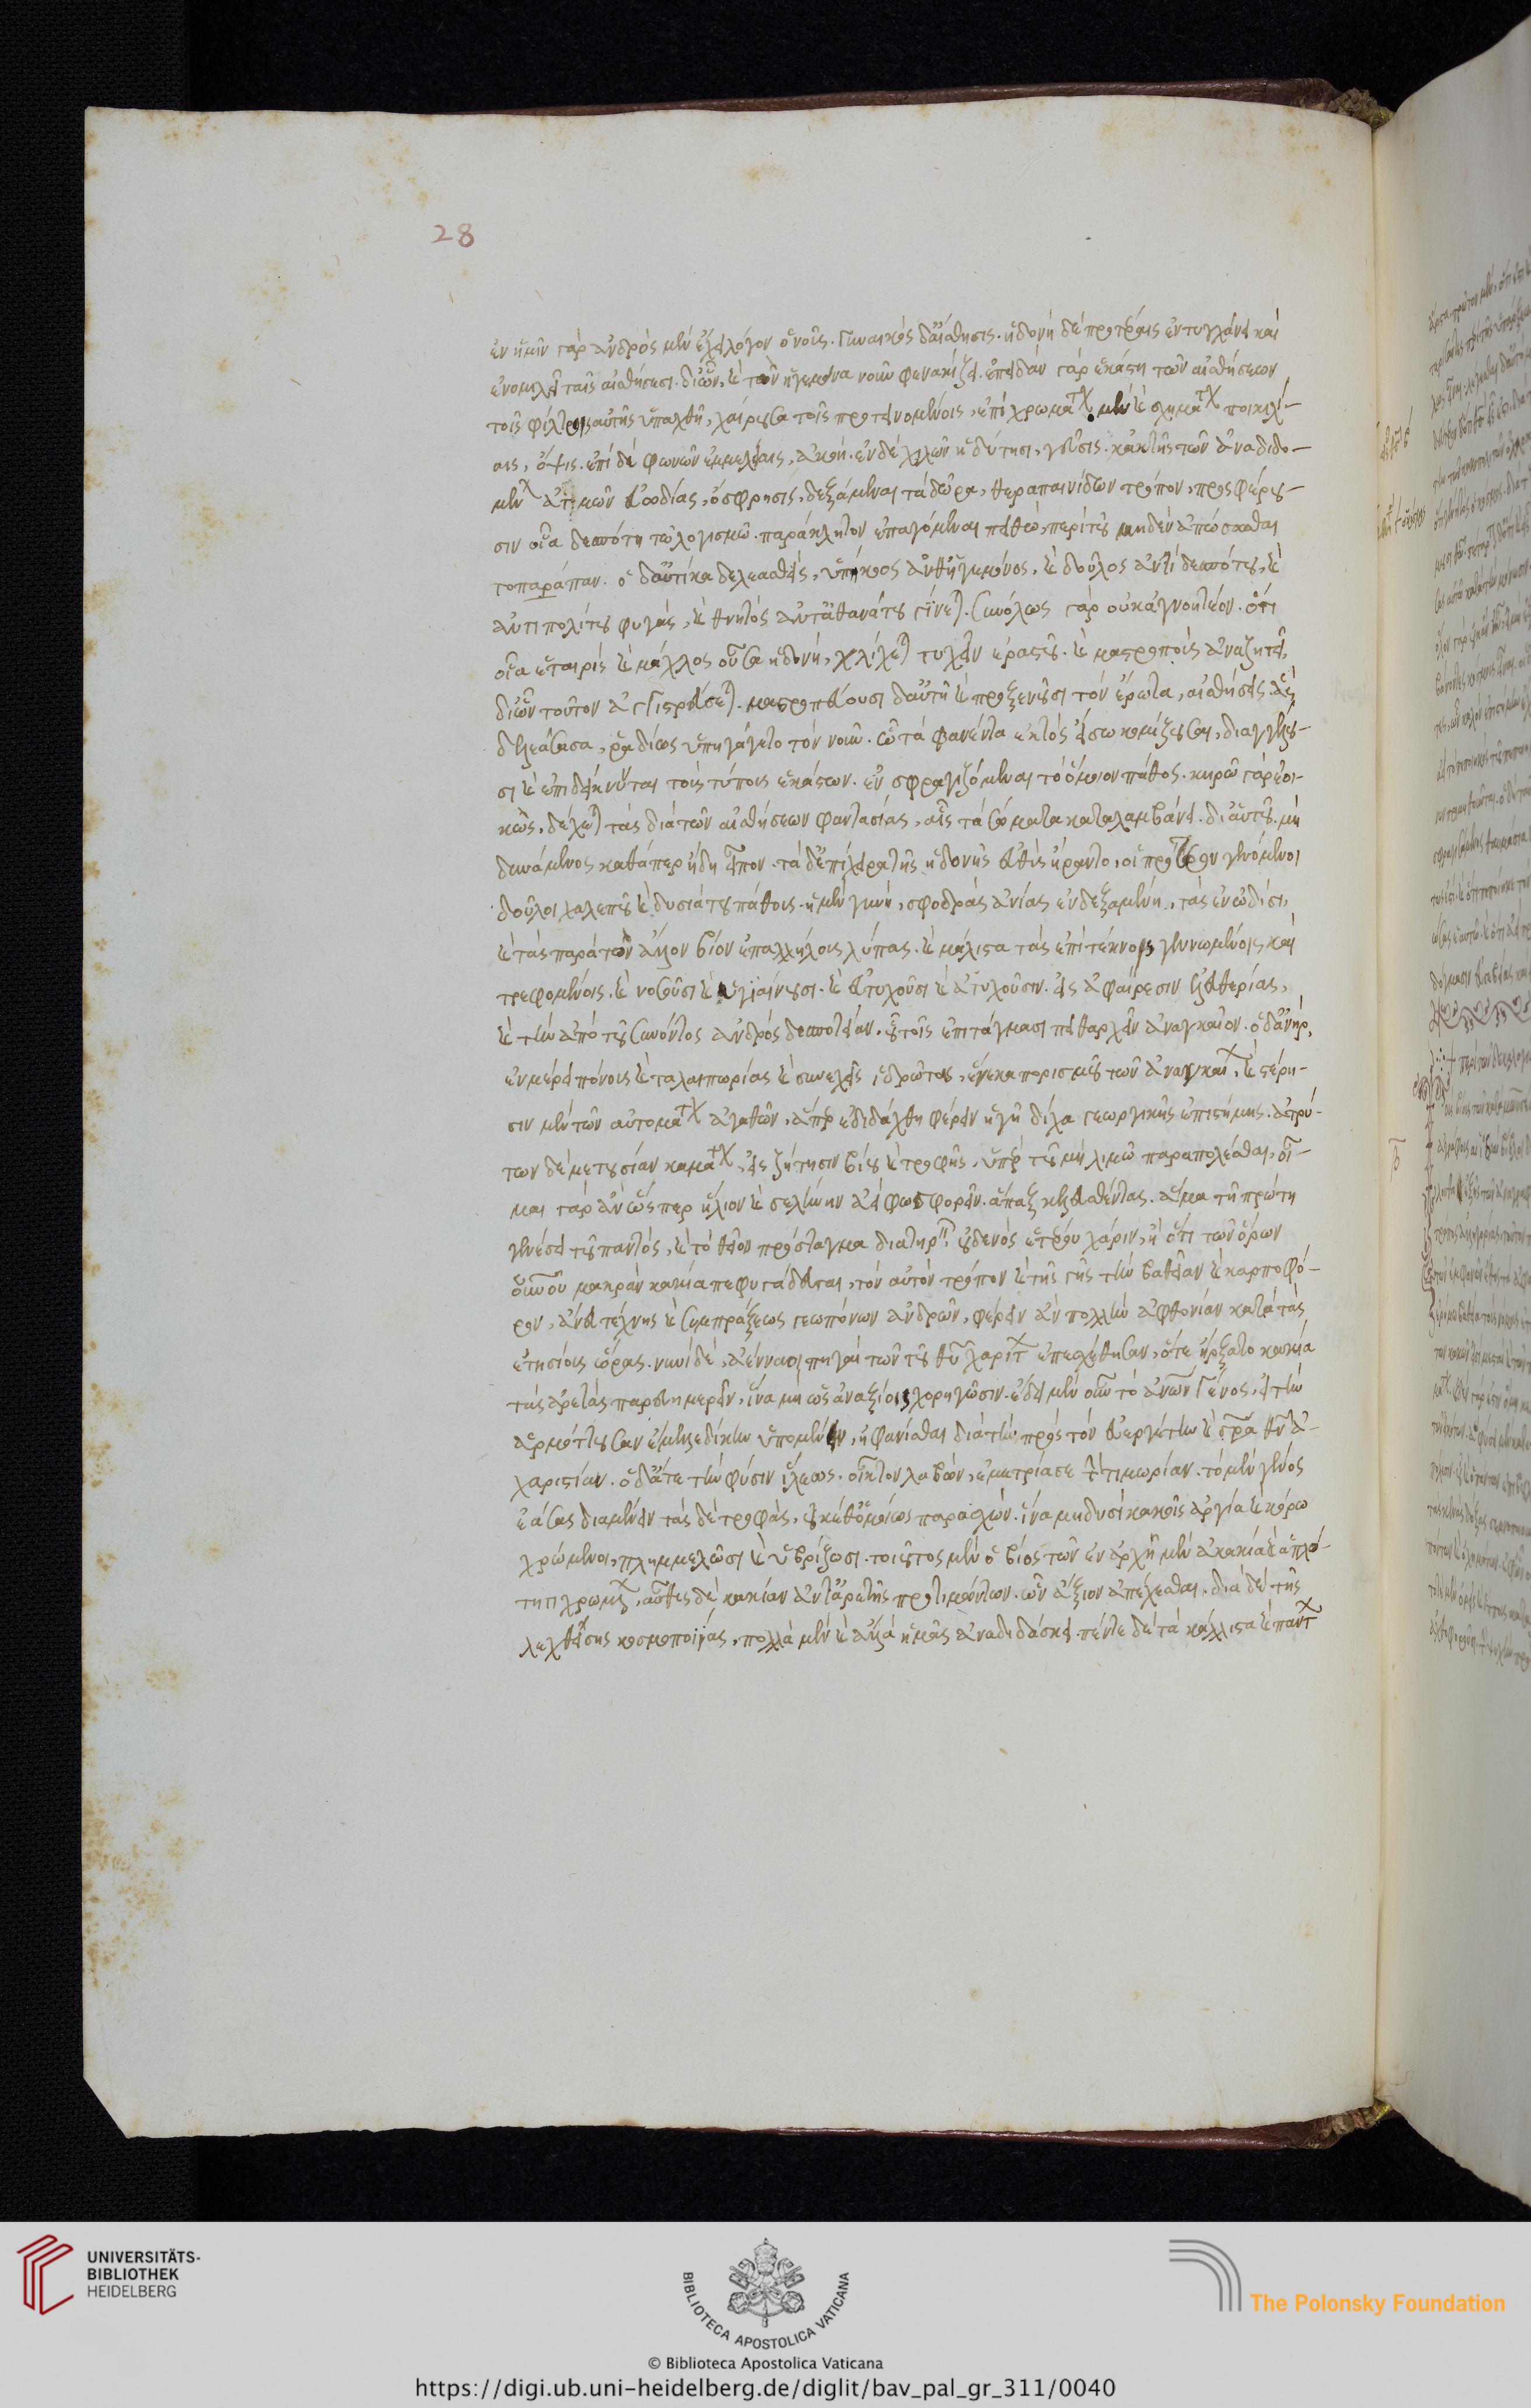 28
ἐν ἡμῖν γὰρ ἀνδρὸς μὲν ἔχει λόγον ὁ νοῦς. γυναικὸς δ' αἴσθησις. ἡδονὴ δὲ προτέραις ἐντυγχάνει καὶ
ἐνομιλεῖ ταῖς αἰσθήσεσι. δι' ὧν, καὶ τὸν ἡγεμόνα νοῦν φενακίζει. ἐπειδὰν γὰρ ἑκάστη τῶν αἰσθήσεων
τοῖς φίλτροις αὐτῆς ὑπαχθῇ, χαίρουσα τοῖς προτεινομένοις, ἐπὶ χρωμάτων μὲν καὶ σχημάτων ποικιλί-
αις, ὄψις. ἐπὶ δὲ φωνῶν ἐμμελείαις, ἀκοή. ἐν δὲ χυλῶν ἡδύτησι, γεῦσις. κἀκ τῆς τῶν ἀναδιδο-
μένων ἀτμῶν εὐωδίας, ὄσφρησις, δεξάμεναι τὰ δῶρα, θεραπαινίδων τρόπον, προσφέρου-
σιν οἷα δεσπότῃ τῷ λογισμῷ. παράκλητον ἐπαγόμεναι πειθώ, περὶ τοῦ μηδὲν ἀπώσασθαι
τοπαράπαν. ὁ δ' αὐτίκα δελεασθεὶς, ὑπήκοος ἀνθ' ἡγεμόνος, καὶ δοῦλος ἀντὶ δεσπότου, καὶ
ἀντὶ πολίτου φυγὰς, καὶ θνητὸς ἀντ' ἀθανάτου γίνεται. συνόλως γὰρ οὐκ ἀγνοητέον. ὅτι
οἷα ἑταιρὶς καὶ μάχλος οὖσα ἡδονὴ, γλίχεται τυχεῖν ἐραστοῦ. καὶ μαστροποὺς ἀναζητεῖ,
δι' ὧν τοῦτον ἀγκιστρεύσεται. μαστροπεύουσι δ' αὐτῇ καὶ προξενοῦσι τὸν ἔρωτα, αἰσθήσεις. ἃς
δελεάσασα, ῥᾳδίως ὑπηγάγετο τὸν νοῦν. ᾧ τὰ φανέντα ἐκτὸς εἴσω κομίζουσαι, διαγγέλου-
σι καὶ ἐπιδείκνυνται τοὺς τύπους ἑκάστων. ἐν σφραγιζόμεναι τὸ ὅμοιον πάθος. κηρῷ γὰρ ἐοι-
κὼς, δέχεται τὰς διὰ τῶν αἰσθήσεων φαντασίας, αἷς τὰ σώματα καταλαμβάνει. δι' αὑτοῦ, μὴ
δυνάμενος καθάπερ ἤδη εἶπον. τὰ δ' ἐπίχειρα τῆς ἡδονῆς εὐθὺς εὕραντο, οἱ πρότερον γενόμενοι
δοῦλοι χαλεποῦ καὶ δυσιάτου πάθους. ἡ μὲν γυνὴ, σφοδρὰς ἀνίας ἐνδεξαμένη, τὰς ἐν ὠδῖσι,
καὶ τὰς παρὰ τὸν ἄλλον βίον ἐπαλλήλους λύπας. καὶ μάλιστα τὰς ἐπὶ τέκνοις γεννωμένοις καὶ
τρεφομένοις. καὶ νοσοῦσι καὶ ὑγιαίνουσι. καὶ εὐτυχοῦσι καὶ ἀτυχοῦσιν. εἰς ἀφαίρεσιν ἐλευθερίας,
καὶ τὴν ἀπὸ τοῦ συνόντος ἀνδρὸς δεσποτείαν. οὗ τοῖς ἐπιτάγμασι πειθαρχεῖν ἀναγκαῖον. ὁ δ' ἀνὴρ,
ἐν μέρει πόνους καὶ ταλαιπωρίας καὶ συνεχεῖς ἱδρῶτας, ἕνεκα πορισμοῦ τῶν ἀναγκαίων. καὶ στέρη-
σιν μὲν τῶν αὐτομάτων ἀγαθῶν, ἅπερ ἐδιδάχθη φέρειν ἡ γῆ δίχα γεωργικῆς ἐπιστήμης. ἀτρύ-
των δὲ μετουσίαν καμάτων, εἰς ζήτησιν βίου καὶ τροφῆς, ὑπὲρ τοῦ μὴ λιμῷ παραπολέσθαι. οἶ-
μαι γὰρ ἂν ὥσπερ ἥλιον καὶ σελήνην ἀεὶ φωσφορεῖν. ἅπαξ κελευσθέντας. ἅμα τῇ πρώτῃ
γενέσει τοῦ παντὸς, καὶ τὸ θεῖον πρόσταγμα διατηρεῖν. οὐδενὸς ἑτέρου χάριν, ἢ ὅτι τῶν ὅρων
οὐρανοῦ μακρὰν κακία πεφυγάδευται, τὸν αὐτὸν τρόπον καὶ τῆς γῆς τὴν βαθεῖαν καὶ καρποφό-
ρον, ἄνευ τέχνης καὶ συμπράξεως γεωπόνων ἀνδρῶν, φέρειν ἂν πολλὴν ἀφθονίαν κατὰ τὰς
ἐτησίους ὥρας. νυνὶ δὲ, ἀένναοι πηγαὶ τῶν τοῦ θεοῦ χαρίτων ἐπεσχέθησαν, ὅτε ἤρξατο κακία
τὰς ἀρετὰς παρευημερεῖν, ἵνα μὴ ὡς ἀναξίοις χορηγῶσιν. ἔδει μὲν οὖν τὸ ἀνθρώπων γένος, εἰ τὴν
ἁρμόττουσαν ἔμελλε δίκην ὑπομένειν, ἠφανίσθαι διὰ τὴν πρὸς τὸν εὐεργέτην καὶ σωτῆρα θεὸν ἀ-
χαριστίαν. ὁ δ' ἅτε τὴν φύσιν ἵλεως, οἶκτον λαβὼν, ἐμετρίασε τὴν τιμωρίαν. τὸ μὲν γένος
ἐάσας διαμένειν τὰς δὲ τροφὰς, οὐκέθ' ὁμοίως παρασχών. ἵνα μὴ δυσὶ κακοῖς ἀργίᾳ καὶ κόρῳ
χρώμενοι, πλημμελῶσι καὶ ὑβρίζωσι. τοιοῦτος μὲν ὁ βίος τῶν ἐν ἀρχῇ μὲν ἀκακίᾳ καὶ ἁπλό-
τητι χρωμένων, αὖθις δὲ κακίαν ἀντ' ἀρετῆς προτιμώντων. ὧν ἄξιον ἀπέχεσθαι. διὰ δὲ τῆς
λεχθείσης κοσμοποιίας, πολλὰ μὲν καὶ ἄλλα ἡμᾶς ἀναδιδάσκει. πέντε δὲ τὰ κάλλιστα καὶ πάντων
UNIVERSITÄTS-
BIBLIOTHEK
HEIDELBERG
BIBLIOTECA APOSTOLICA VATICANA
The Polonsky Foundation
© Biblioteca Apostolica Vaticana
https://digi.ub.uni-heidelberg.de/diglit/bav_pal_gr_311/0040